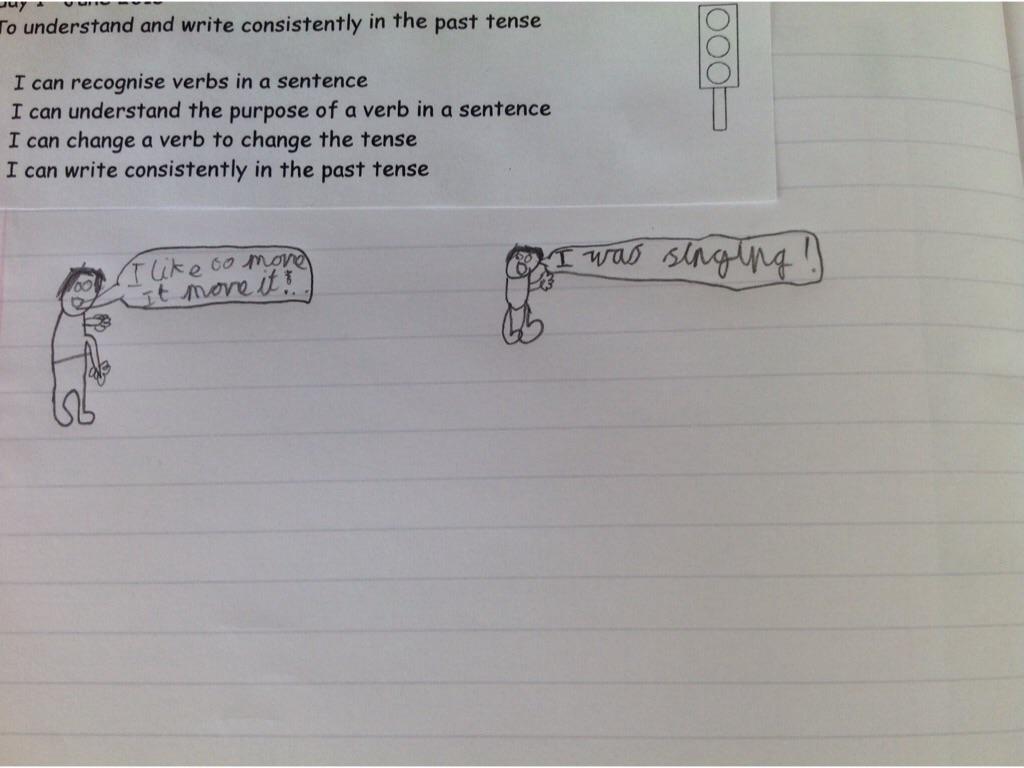 To understand and write consistently in the past tense
I can recognise verbs in a sentence
I can understand the purpose of a verb in a sentence
I can change a verb to change the tense
I can write consistently in the past tense
I like to move
It move it!..
I was singing!